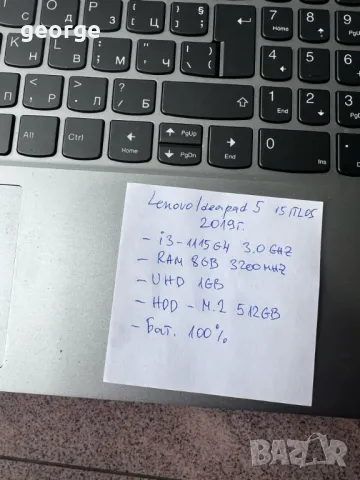 george
Home
PgUp
End
PgDn
Alt
Ctrl
PgUp
PgDn
End
Ins
Lenovo Ideapad 5 15ITL05
2019г.
- i3-1115G4 3.0GHZ
- RAM 8GB 3200MHZ
- UHD 1GB
- HDD - M.2 512GB
- Бат. 100%
BAZAR